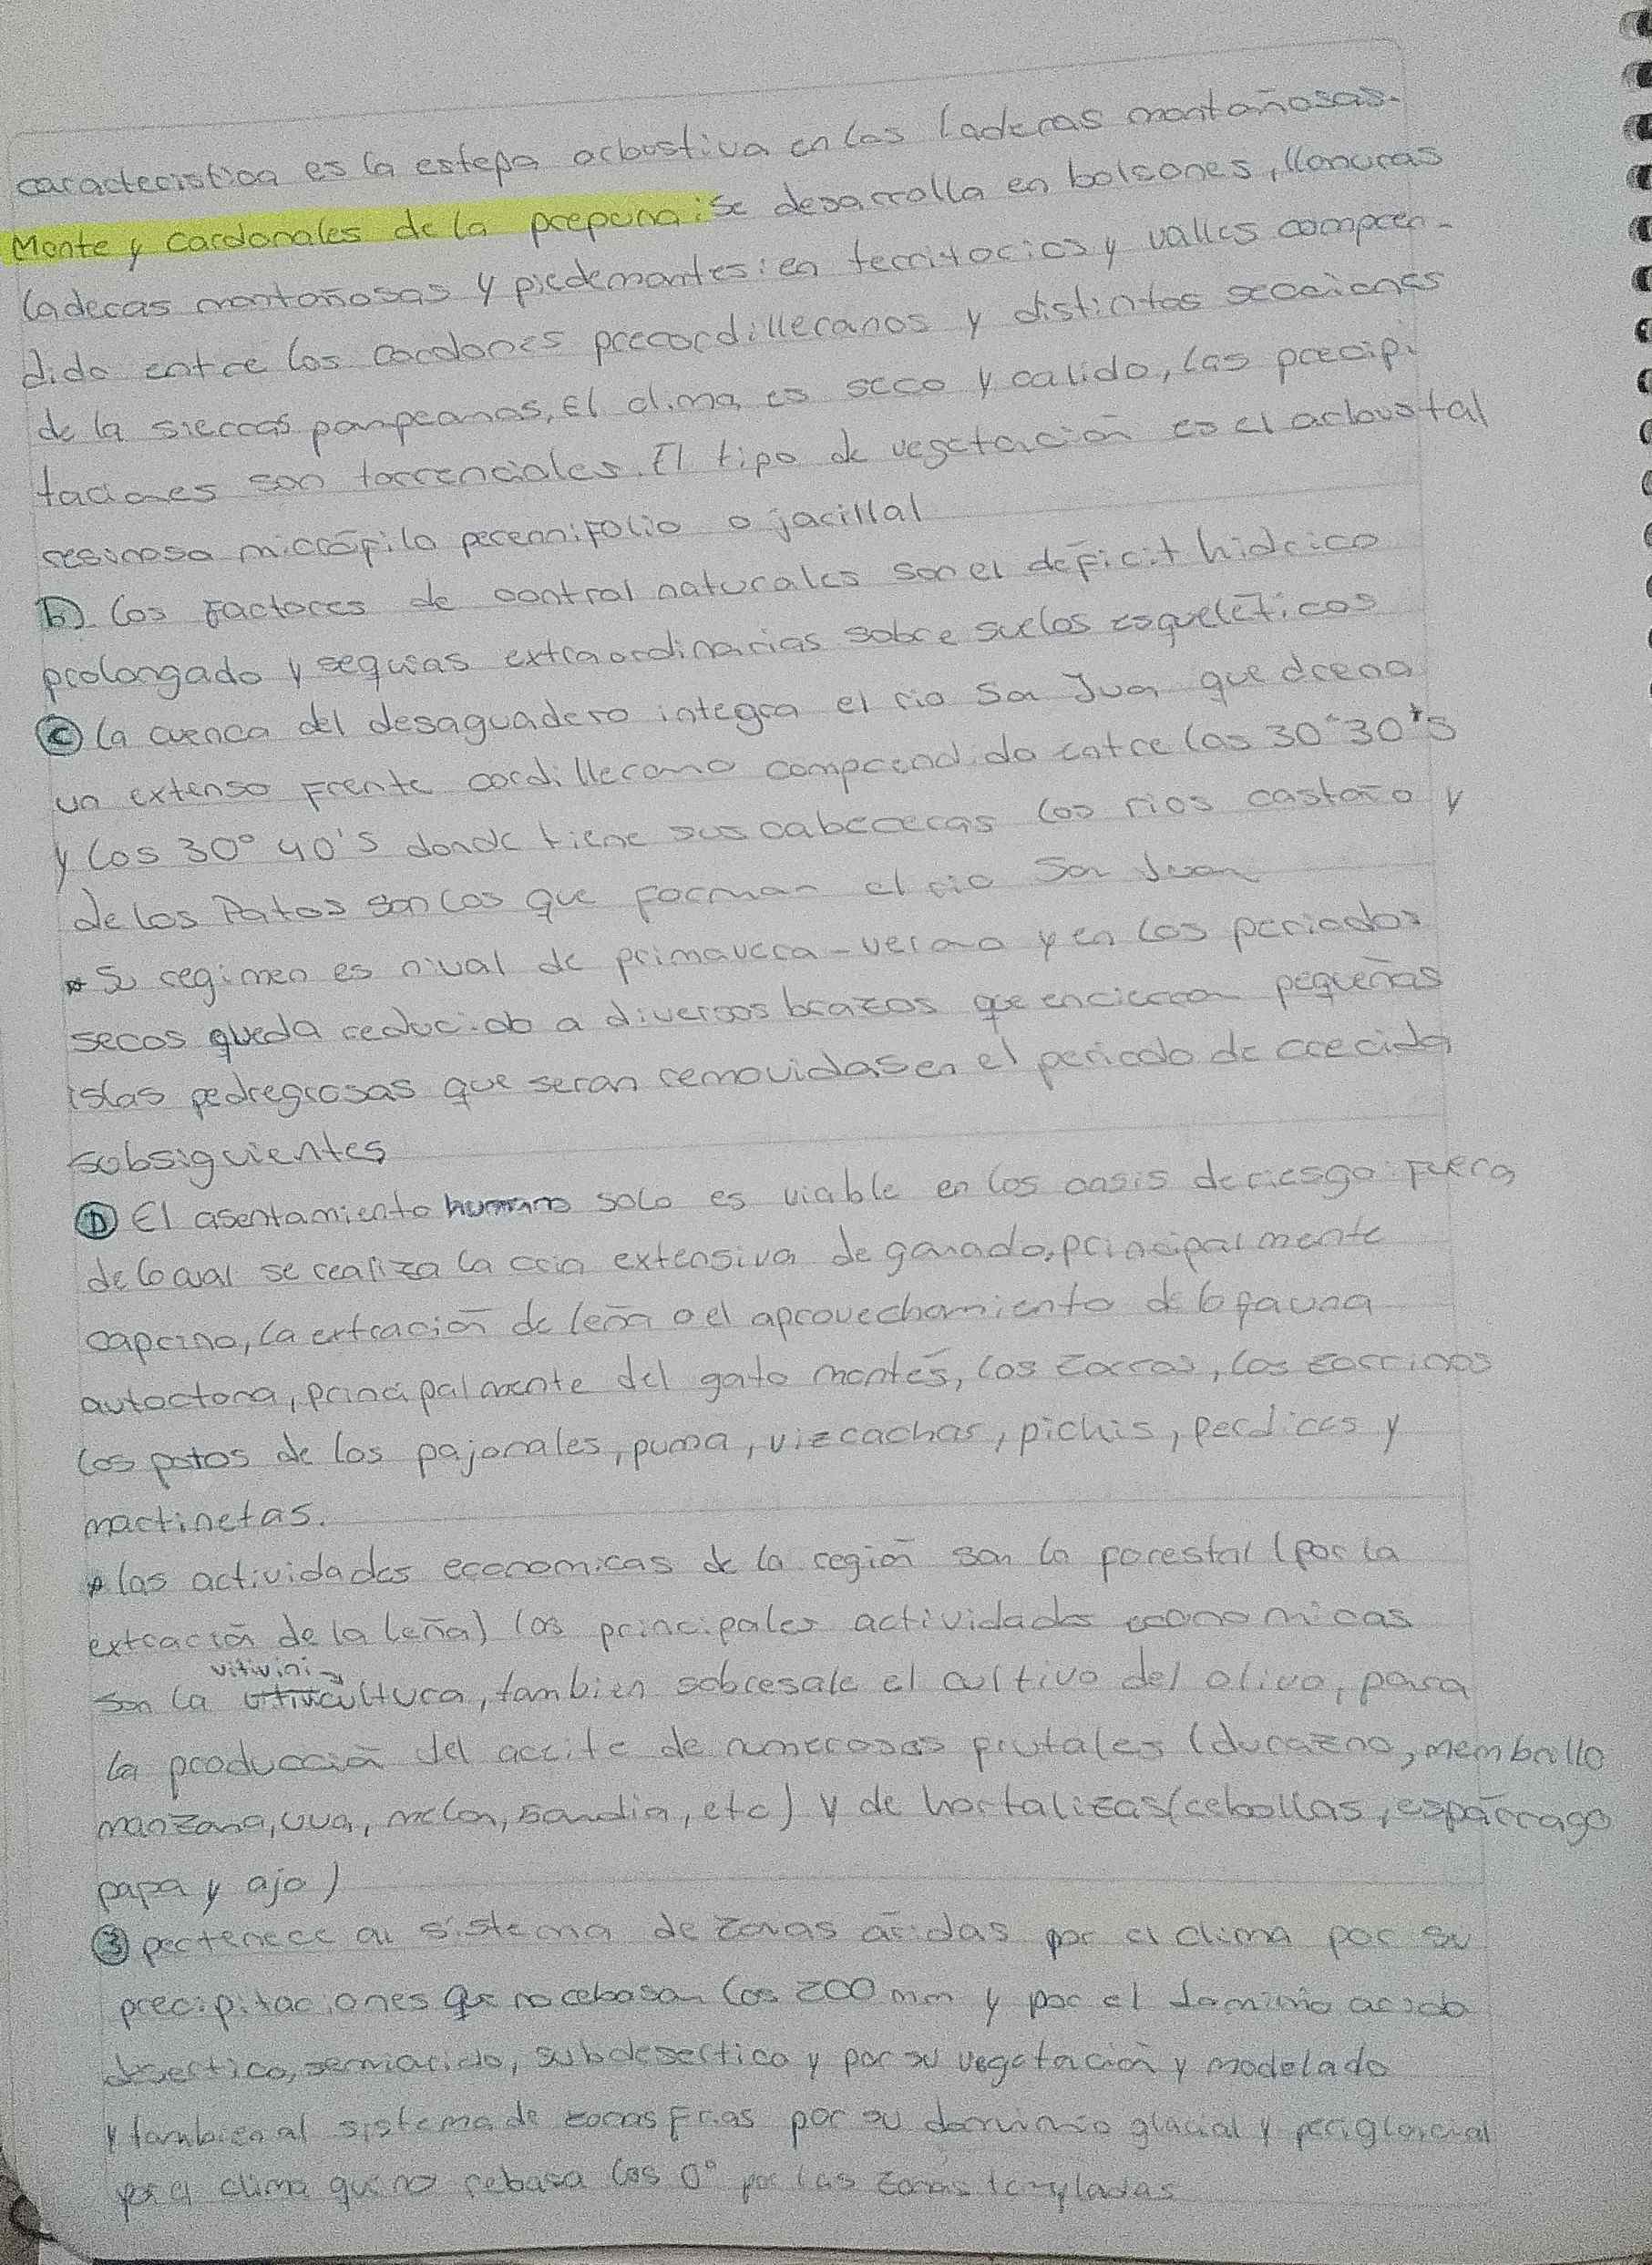 caracteristica es la estepa arbustiva en las laderas montañosas.
Monte y cardonales de la prepuna: Se desarrolla en bolsones, llanuras
laderas montañosas y piedemontes: en territorios y valles compren-
dido entre los cordones precordilleranos y distintos secciones
de la sierras pampeanas, El clima es seco y calido, las precipi
taciones son torrenciales. El tipo de vegetación es el arbustal
resinoso micrófilo perennifolio o jarillal
b) los factores de control naturales son el déficit hidrico
prolongado y sequias extraordinarias sobre suelos esqueléticos
C) la cuenca del desaguadero integra el rio San Juan que drena
un extenso frente cordillerano comprendido entre las 30° 30's
y los 30° 40's donde tiene sus cabeceras los rios castaño y
de los Patos son los que forman el rio San Juan
* Su regimen es nival de primavera - verano y en los periodos
secos queda reducido a diversos brazos que encierran pequeñas
islas pedregrosas que seran removidas en el periodo de crecida
subsiguientes
D) El asentamiento humano solo es viable en los oasis de riesgo fuera
de lo cual se realiza la cria extensiva de ganado, principalmente
caprino, la extración de leña o el aprovechamiento de la fauna
autoctona, principalmente del gato montés, los zorros, los zorrinos
los patos de los pajonales, puma, vizcachas, pichis, perdices y
martinetas.
* las actividades economicas de la región son la forestal (por la
extración de la leña) las principales actividades economicas
son la vitivinicultura, tambien sobresale el cultivo del olivo, para
la producción del aceite de numerosos frutales (durazno, membrillo
manzana, uva, melon, sandia, etc) y de hortalizas (cebollas, espárrago
papa y ajo)
3) pertenece al sistema de zonas áridas por el clima por su
precipitaciones que no rebasan los 200 mm y por el dominio arido
desertico, semiarido, subdesertico y por su vegetación y modelado
y tambien al sistema de zonas frias por su dominio glacial y periglacial
por el clima que no rebasa los 0° por las zonas templadas